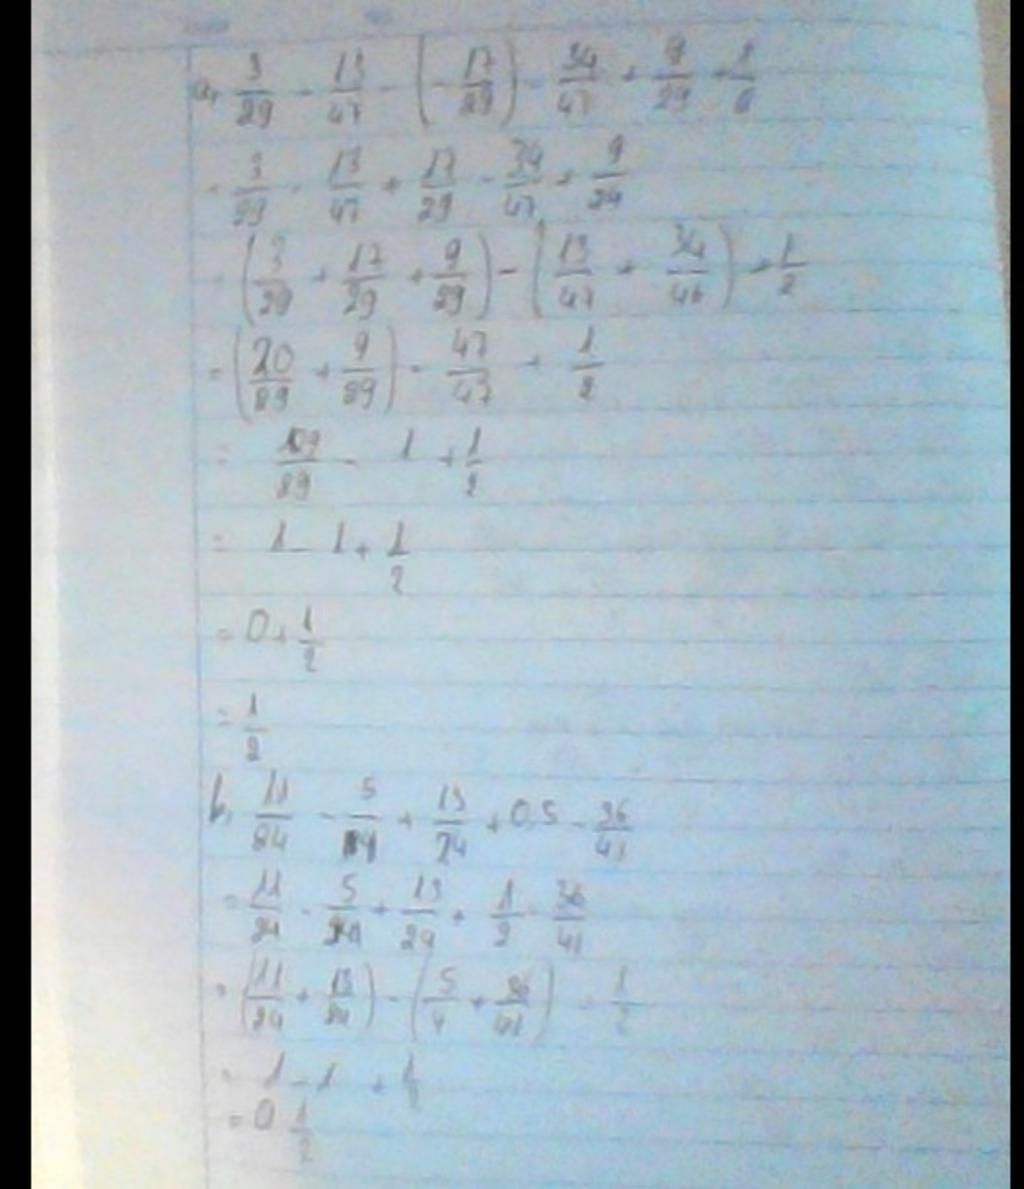 a, 3/29 - 13/47 - (-17/29) - 34/47 + 9/29 +
= 3/29 - 13/47 + 17/29 - 34/47 + 9/29
= (3/29 + 17/29 + 9/29) - (13/47 + 34/46) + 1/2
= (20/29 + 9/29) - 47/47 + 1/2
= /29 - 1 + 1/2
= 1 - 1 + 1/2
= 0 + 1/2
= 1/2
b, 11/24 - 5/ + 13/24 + 0,5 - 36/41
= 11/24 - 5/ + 13/24 + 1/2 - 36/41
= (11/24 + 13/24) - (5/4 + 36/41) 1/2
= 1 - 1 +
= 0 1/2